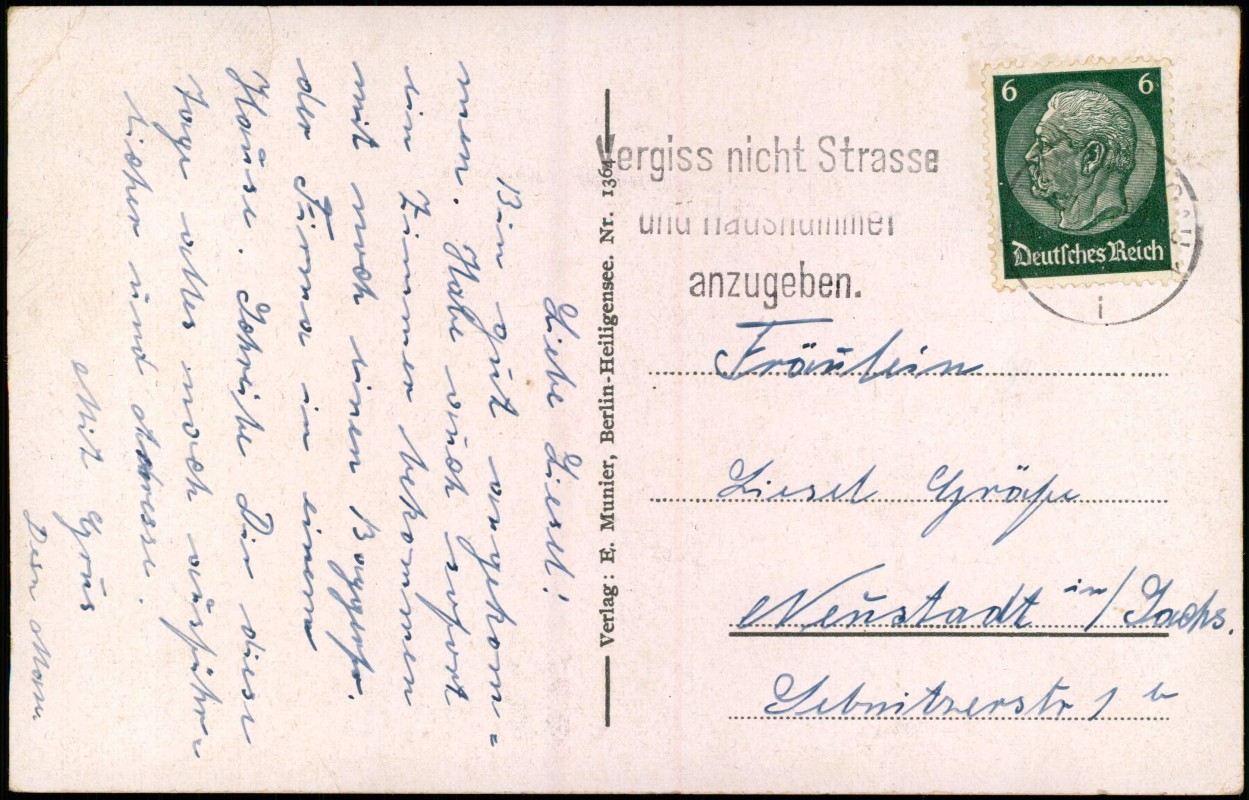 Liebe Liesel!
Bin gut angekom=
men. Habe auch sofort
ein Zimmer bekommen
mit noch einen
der Firma in einem
Hause. Schreibe Dir diese
Tage alles noch ausführ=
licher und Adresse.
Mit Gruß
Dein
Verlag: E. Munier, Berlin-Heiligensee. Nr. 1364
Vergiss nicht Strasse
und Hausnummer
anzugeben.
6 6
Deutsches Reich
i
Fräulein
Liesel Gräfe
Neustadt in/Sachs.
Sebnitzerstr 1 b